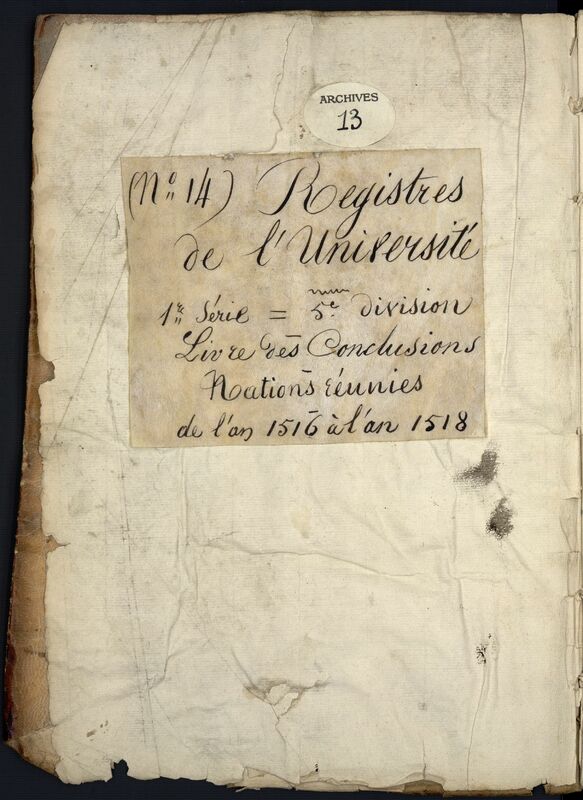 ARCHIVES
13
(N° 14) Registres
de l'Université
1re Série = 5e division
Livre des Conclusions
Nations réunies
de l'an 1516 à l'an 1518